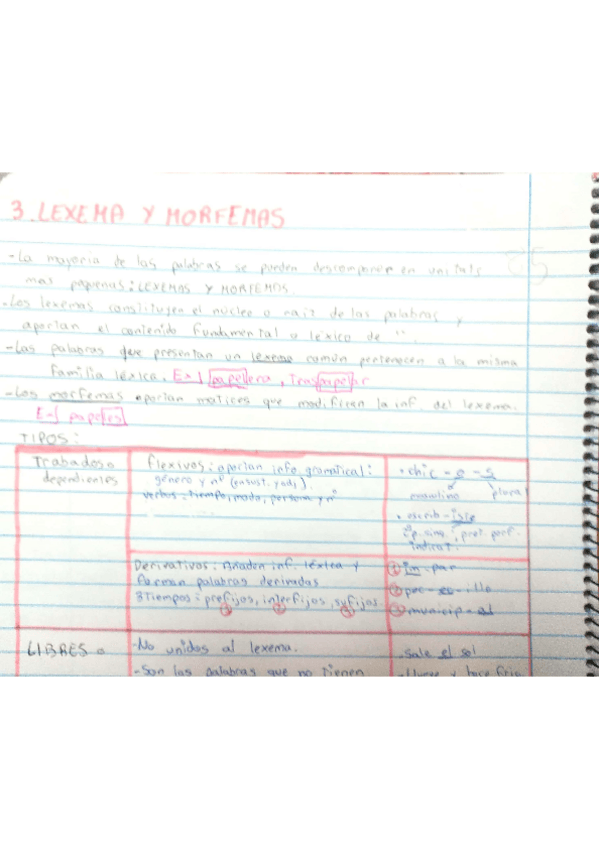 3. LEXEMA Y MORFEMAS
-La mayoría de las palabras se pueden descomponer en unitats
mas pequenas: LEXEMAS Y MORFEMOS.
-Los lexemas constituyen el núcleo o raíz de las palabras y
aportan el contenido fundamental o léxico de ".
-Las palabras que presentan un lexema común pertenecen a la misma
familia léxica. Ej papelera, traspapelar
-Los morfemas aportan matices que modifican la inf. del lexema.
Ej papeles
TIPOS:
Trabados o
dependientes
flexivos: aportan info gramatical:
género y nº (en sust. y adj).
verbos: tiempo, modo, persona y nº
• chic - o - s
masculino plural
• escrib-iste
2ª p. sing, pret. perf.
indicat.
Derivativos: Añaden inf. léxica y
forman palabras derivadas
3 tiempos: prefijos, interfijos, sufijos
1 2 3
1 im-par
2 pec-illo
3 municip-al
LIBRES o
-No unidos al lexema.
-Son las palabras que no tienen
-Sale el sol
-Llueve y hace frio